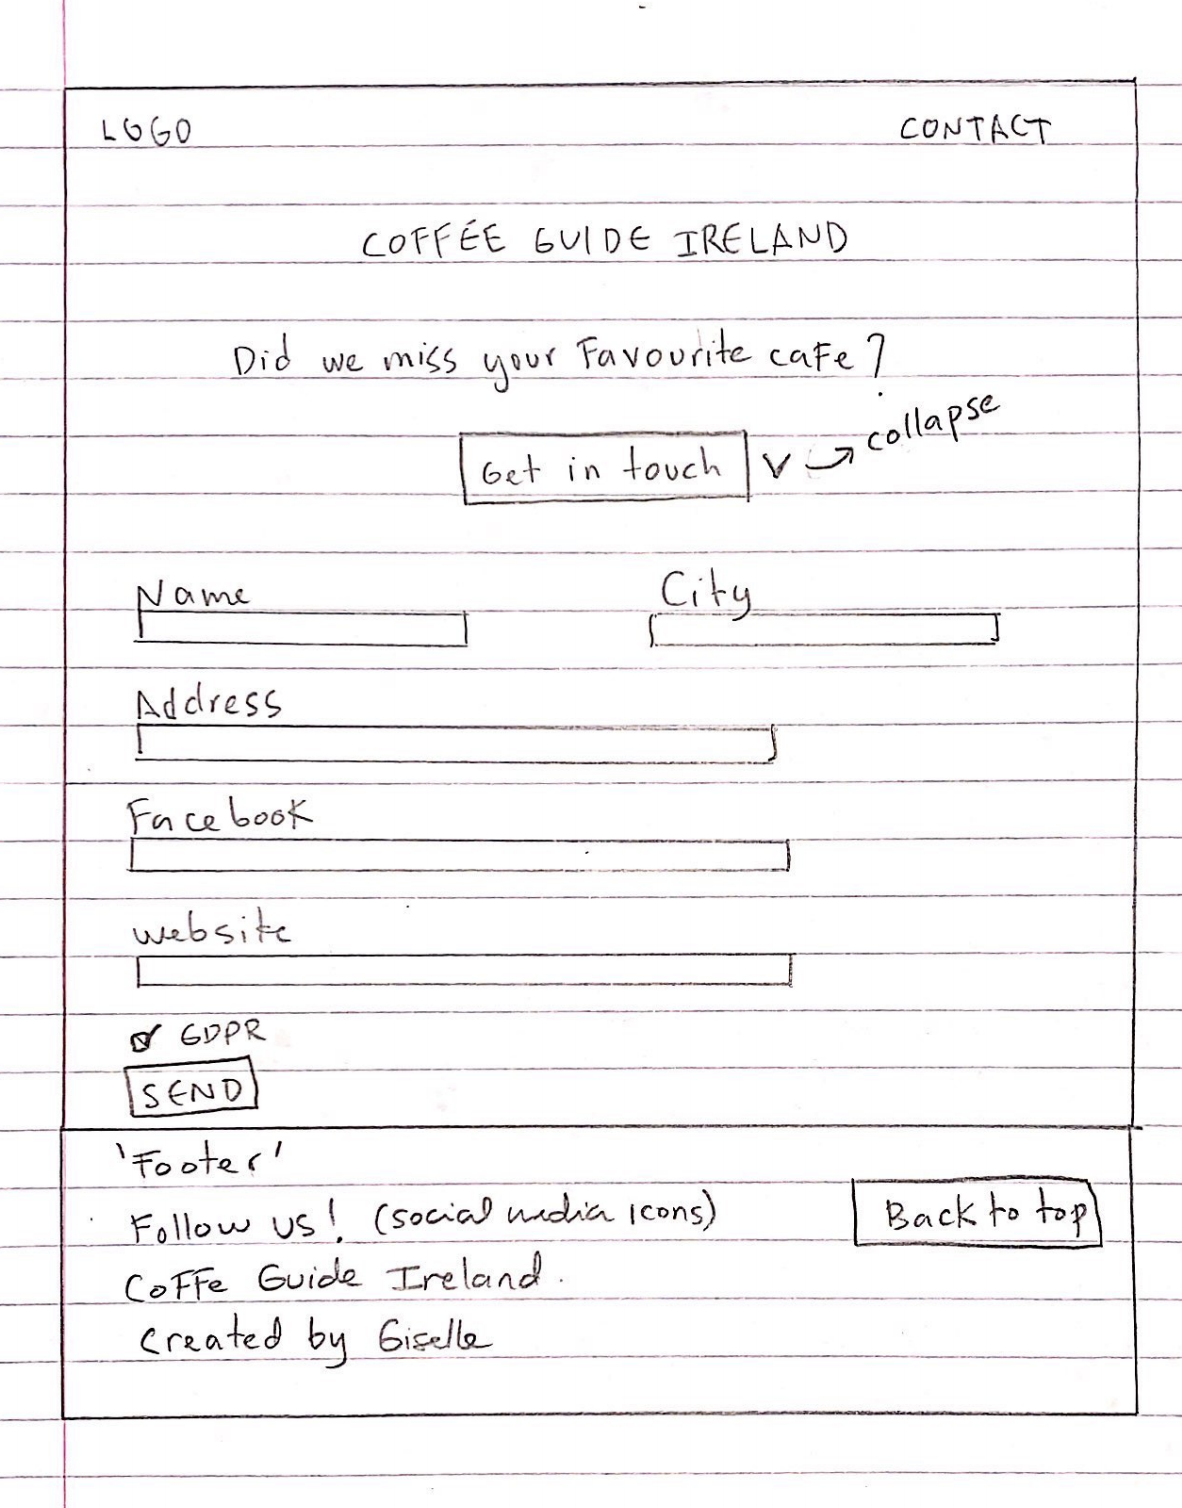 LOGO CONTACT
COFFEE GUIDE IRELAND
Did we miss your Favourite cafe?
Get in touch V → collapse
Name City
Address
Facebook
website
☑ GDPR
SEND
'Footer'
Follow us! (social media icons) Back to top
CoFFe Guide Ireland.
Created by Giselle